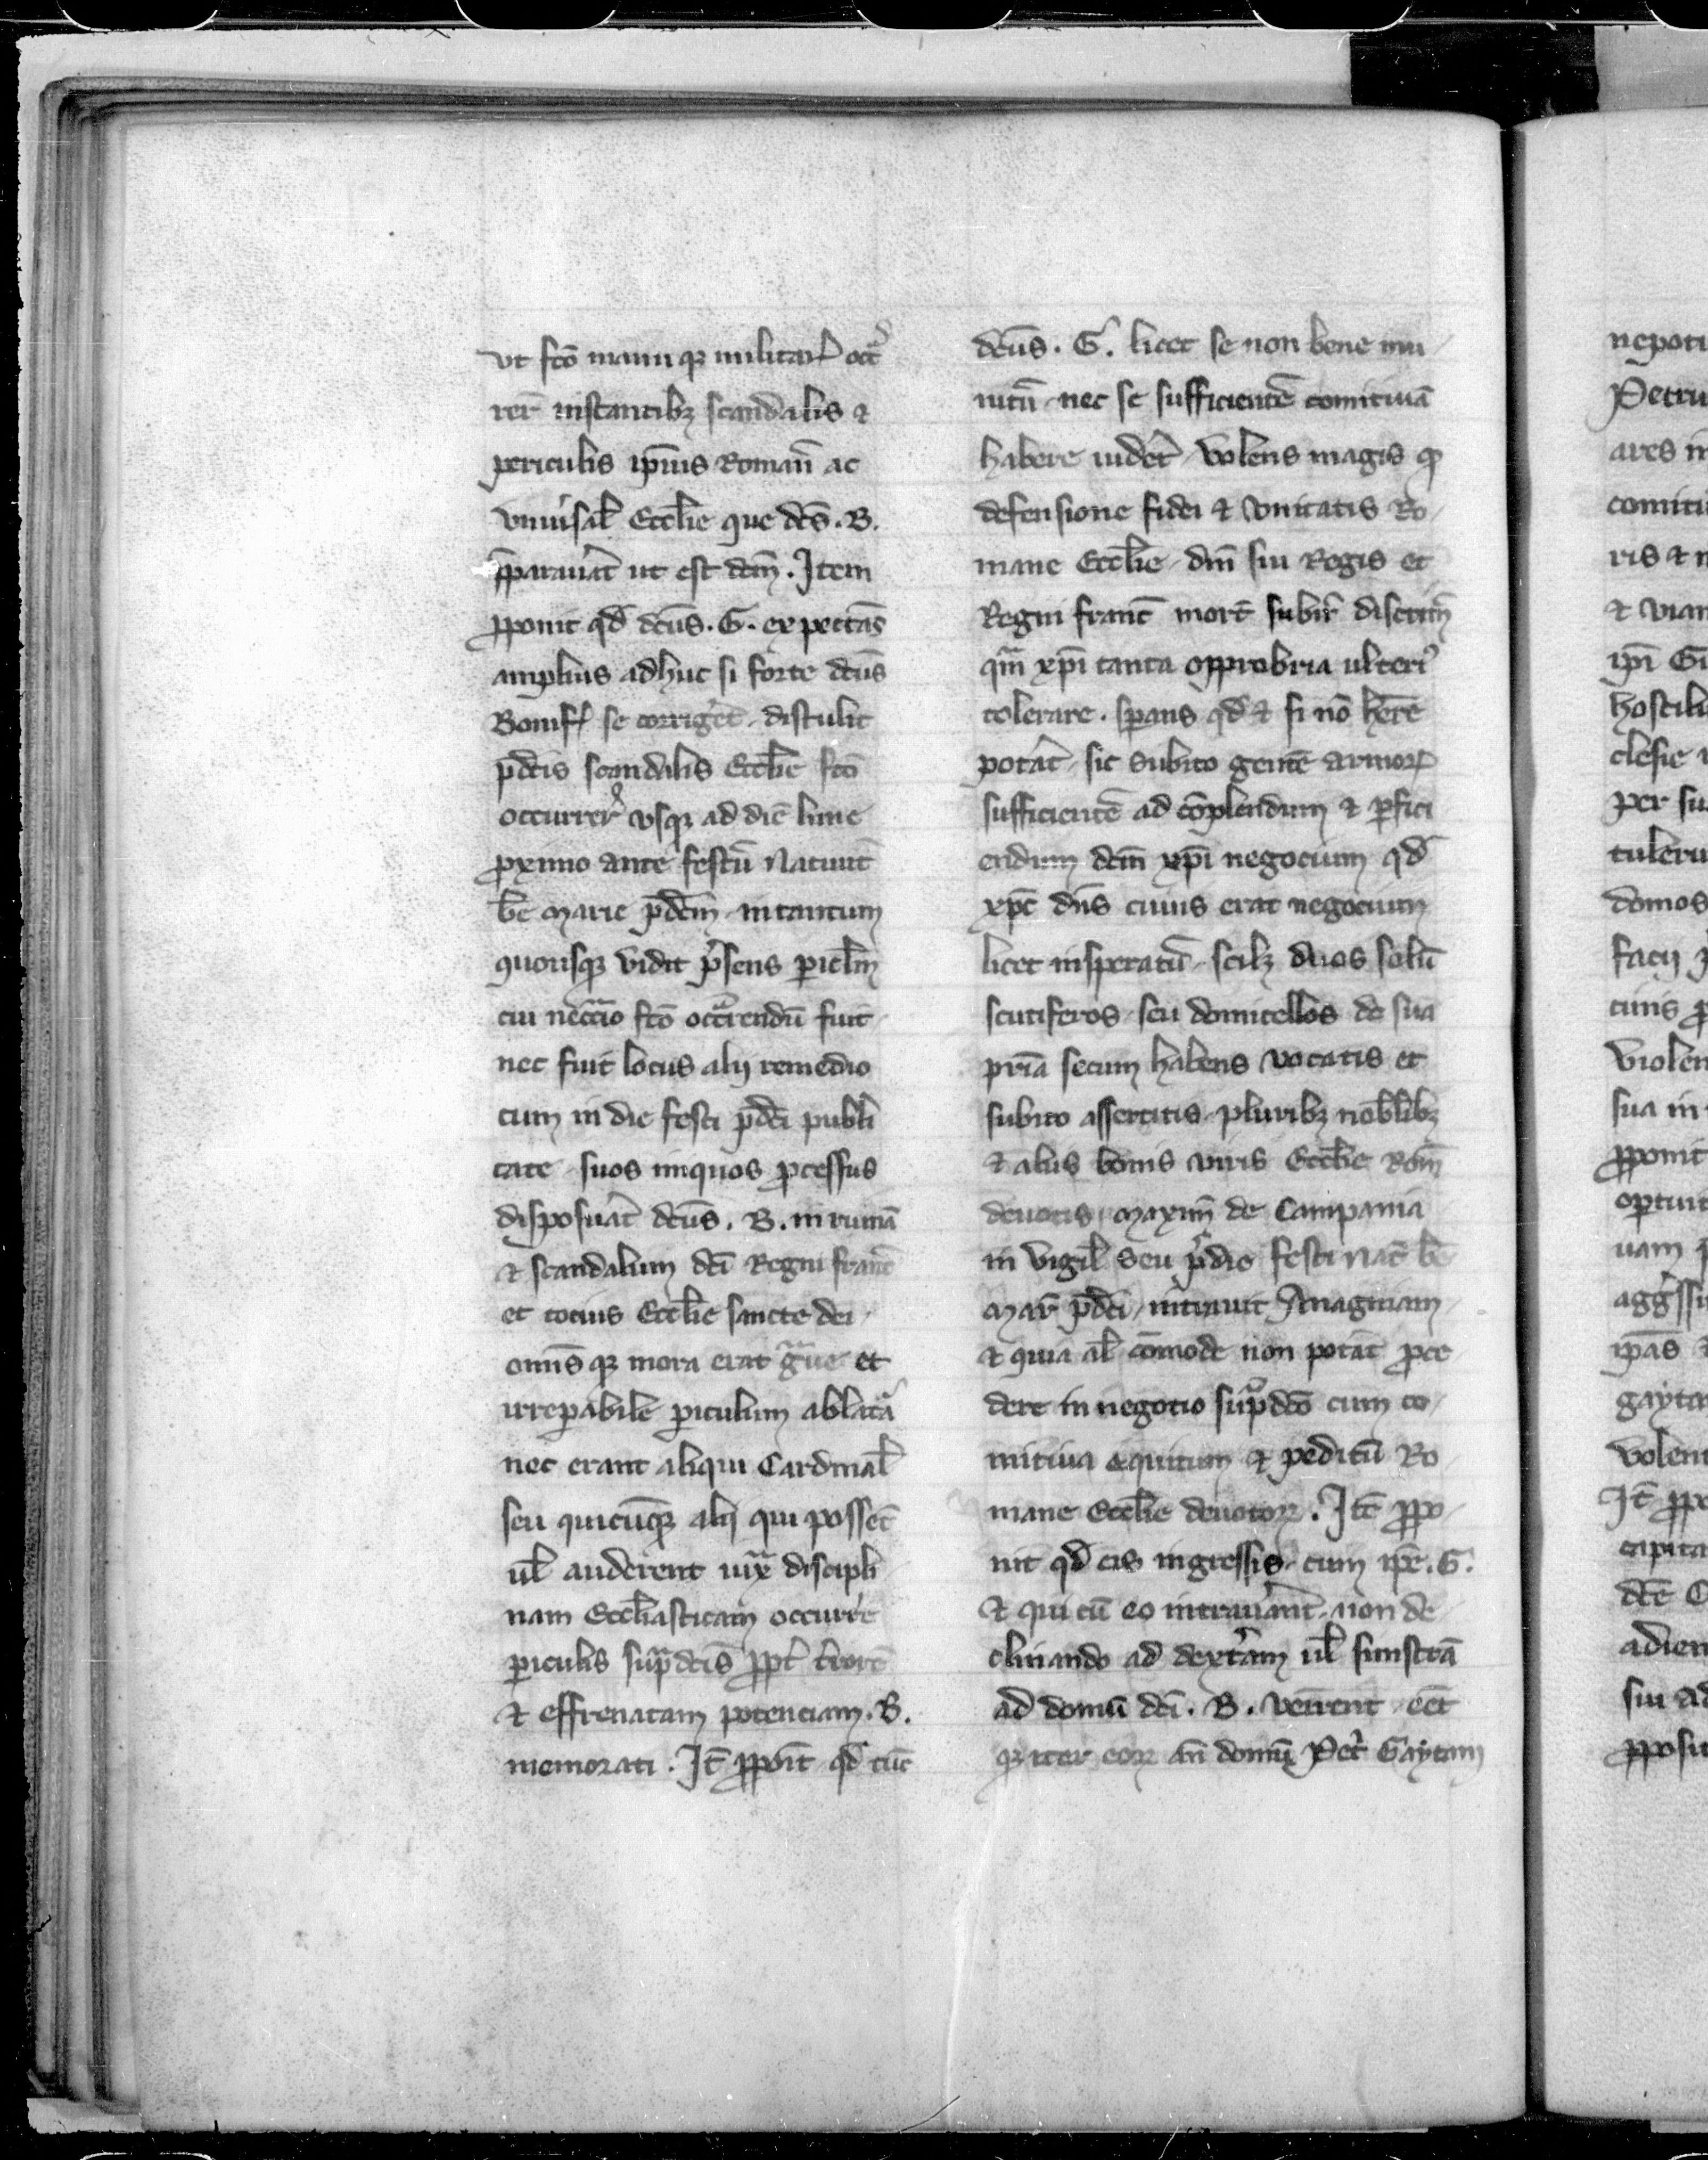 ut fco manu qꝫ militari occᷣ
rer̄ instantibꝫ scandalis ⁊
periculis ip̄ius Roman̄ ac
vniu̕sal̄ Eccl̄ie que dc̄s . B.
p̄parauat̄ ut est dcm̄ . Item
ꝓponit qd̄ dcūs . G . expectās
amplius adhuc si forte dcūs
Bonif̄ se corrig̕et distulit
p̄dcis scandalis Eccl̄ie fcō
occurrer̕ vsqꝫ ad diē lune
ꝓximo ante festū Natiuit̄
bē Marie p̄dcm̄ in tantum
quousqꝫ vidit p̕sens ꝑicl̄m
cui nec̄c̄io fcō occᷣrendū fuit
nec fuit locus alij remedio
cum in die festi p̄dci publi
tate suos iniquos ꝓcessus
disposuat̄ dcūs . B . in ruinā
⁊ scandalum dcī Regni franc̄
et tocius Eccl̄ie sancte dei
omīs qꝫ mora erat gᷓue et
irreꝑabile ꝑiculum ablatᷓa
nec erant aliqui Cardinal̄
seu quicūqꝫ alij qui possēt
ul̄ auderent iuxᷓ discipli
nam Eccl̄iasticam occurr̕e
ꝑiculis sup̄dcīs ꝓpt̄ t̕rorē
⁊ effrenatam potenciam . B.
memorati . It̄ ꝓpoīt qd̄ tūc
dcūs . G . licet se non bene mu
nitū nec se sufficientē comitiuā
habere uidet̄ volens magis ꝓ
defensione fidei ⁊ vnitatis Ro
mane Eccl̄ie dn̄i sui Regis et
Regni franc̄ mort̄ subir̕ discrim̄
qm̄ xpī tanta opprobria ulteri̕
tolerare . sꝑans qd̄ ⁊ si nō hēre
potat̄ sic subito gentē armorꝝ
sufficientē ad cōplendum ⁊ ꝑfici
endum dcm̄ xpī negocium qd̄
xpc̄ dn̄s cuius erat negocium
licet insperatū scilꝫ duos solū
scutiferos seu domicellos de sua
pr̄ia secum habens vocatis et
subito assertitis pluribꝫ nobl̄ibꝫ
⁊ aliis bonis viris Eccl̄ie Rom̄
deuotis maxim̄ de Campania
in vigil̄ seu p̕die festi Nat̄ bē
Mar̄ p̄dcī intrauit Anagniam
⁊ quia al̄ cōmode non potat̄ ꝓce
dere in negotio sup̄dcō cum co
mitiua equitum ⁊ peditū Ro
mane Eccl̄ie deuotoꝝ . Itē ꝓpo
nit qd̄ eis ingressis cum ip̄e . G.
⁊ qui cū eo intrau̕ant non de
clinando ad dext̕am ul̄ sinistrā
ad domū dcī . B . veīrent eēt
qꝫ iter eoꝝ an̄ domū Pet̕ Gaytani